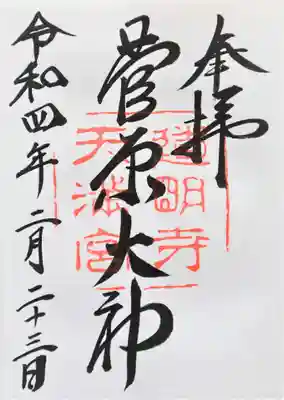 奉拝
菅原大神
令和四年二月二十三日
建明寺
天満宮